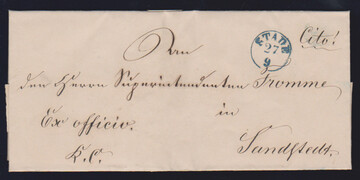 STADE
27
9
Cito!
An
den Herrn Superintendenten Fromme
in
Ex officio.
Sandstedt.
K. C.